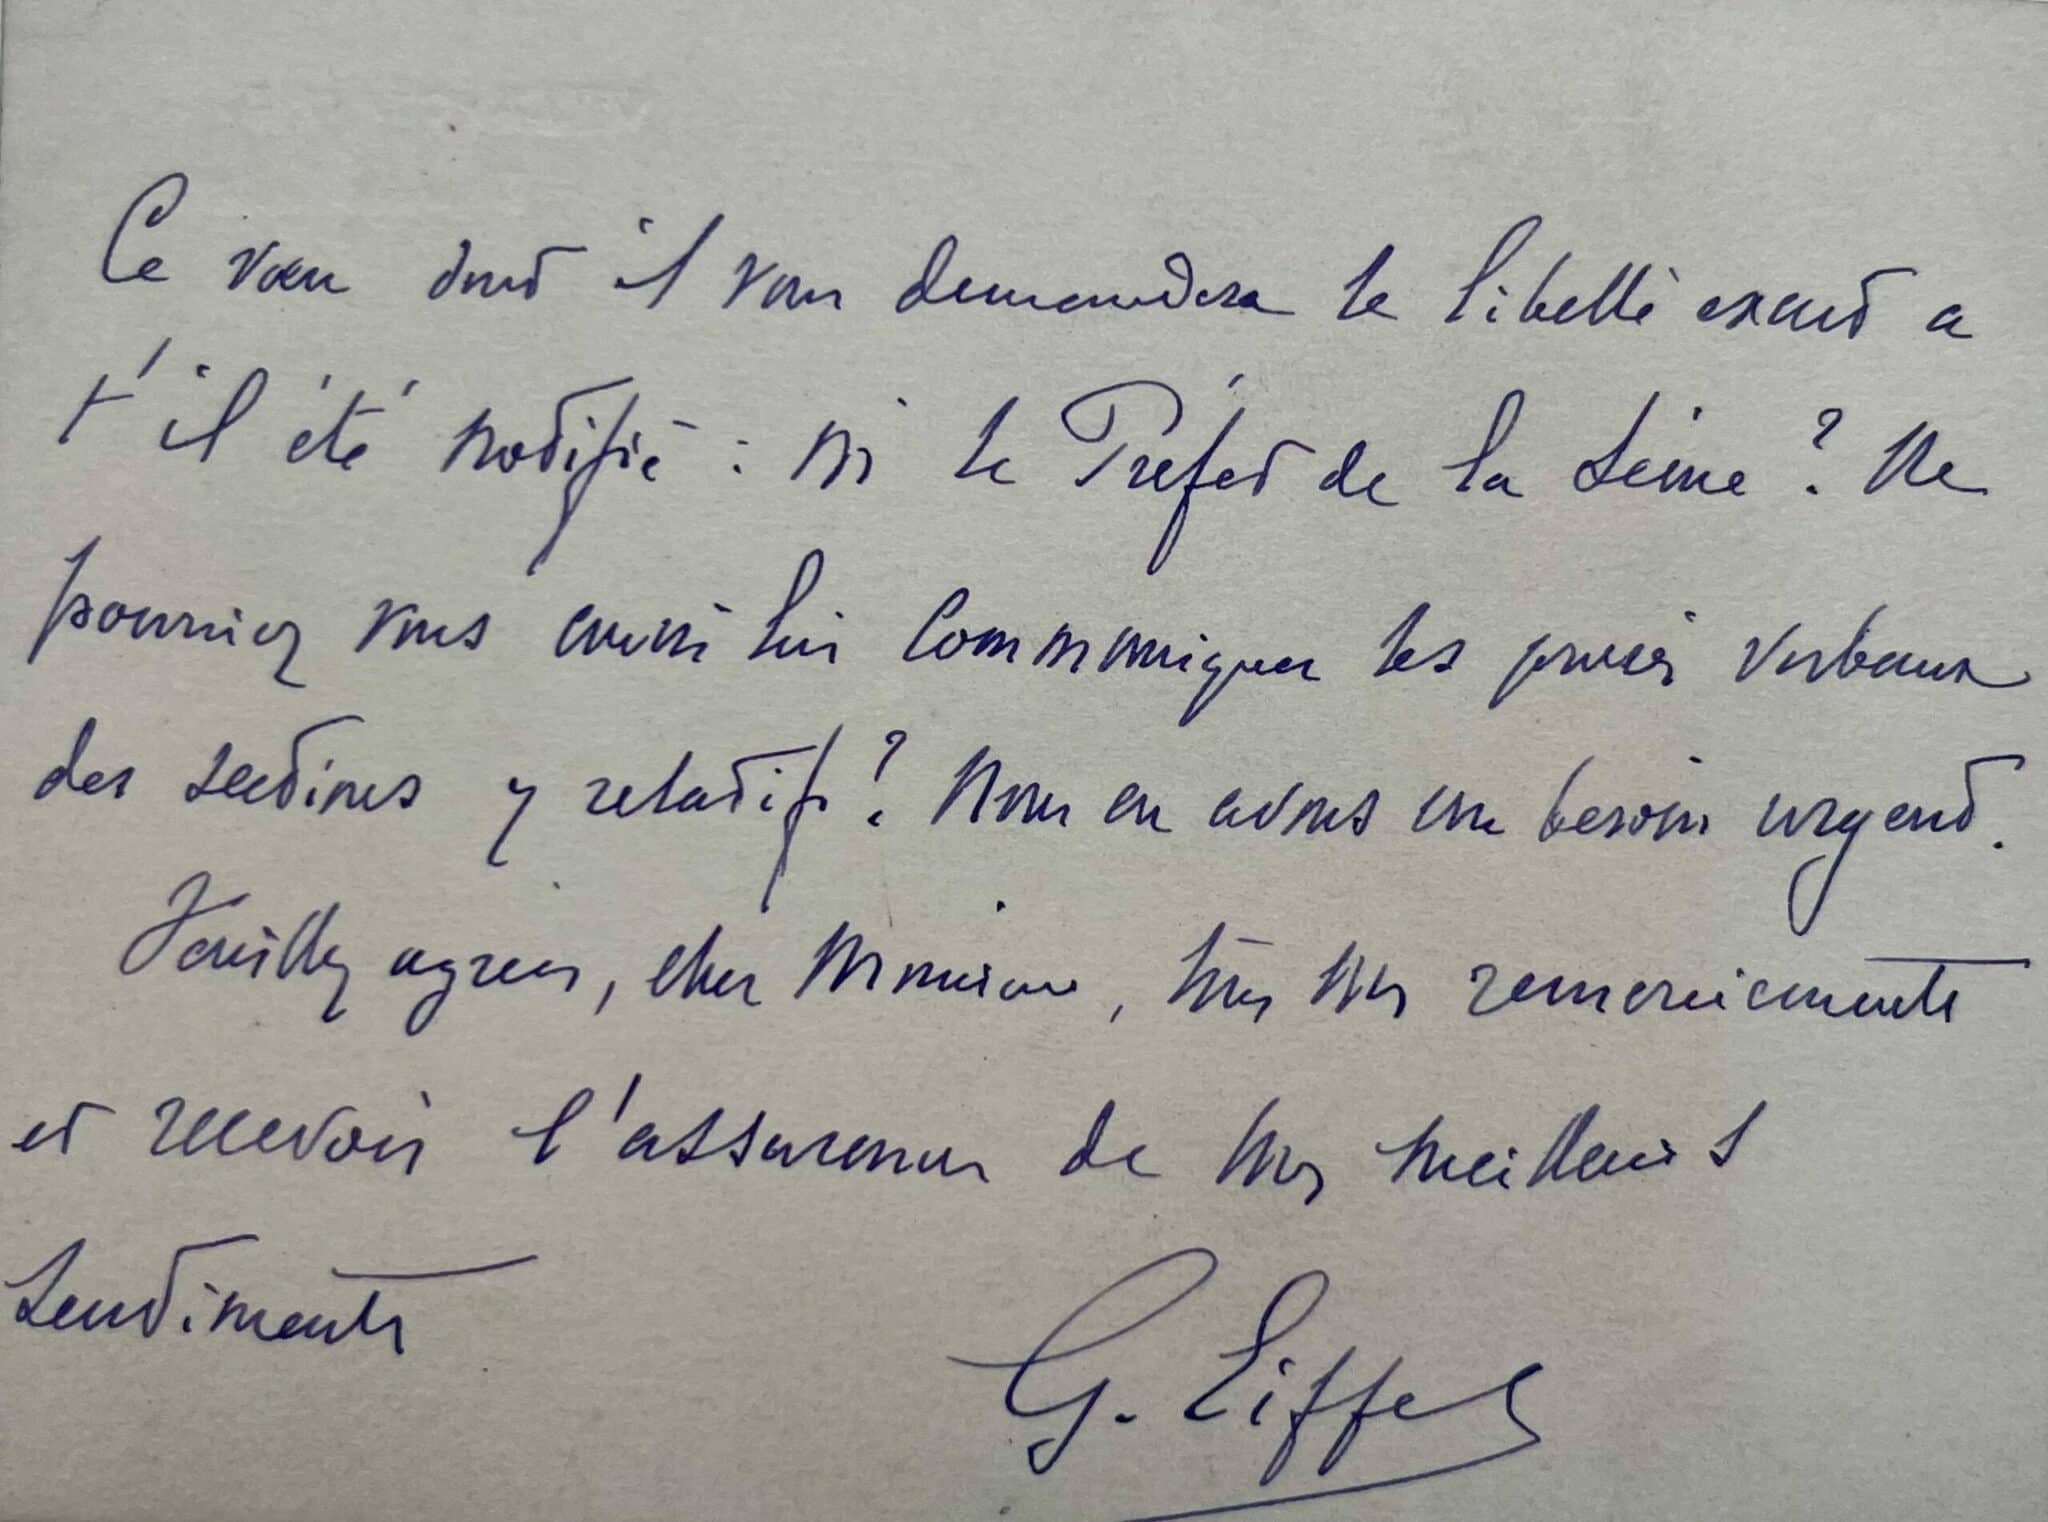 Ce vœu dont il vous demandera le libellé exact a
t'il été notifié : Mr le Préfet de la Seine ? Ne
pourriez vous aussi lui communiquer les procès verbaux
des sections y relatifs ? Nous en avons un besoin urgent.
Veuillez agréer, cher Monsieur, tous mes remerciements
et recevoir l'assurance de mes meilleurs
sentiments
G. Eiffel